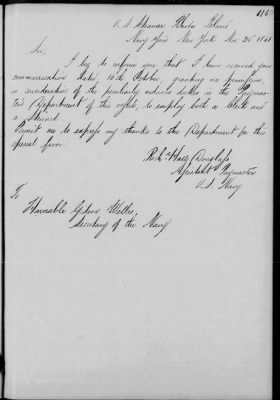 U.S. Steamer Rhode Island
Navy Yard New York Nov 25th 1861
Sir,
I beg to inform you that I have received your
communication dated, 16th October, granting me permission,
in consideration of the peculiarly arduous duties in the Paymas-
ter's Department of this vessel, to employ both a Clerk and
Steward
Permit me to express my thanks to the Department for this
special favor.
Douglass
Assistant Paymaster
U.S. Navy
To
Honorable Gideon Welles,
Secretary of the Navy